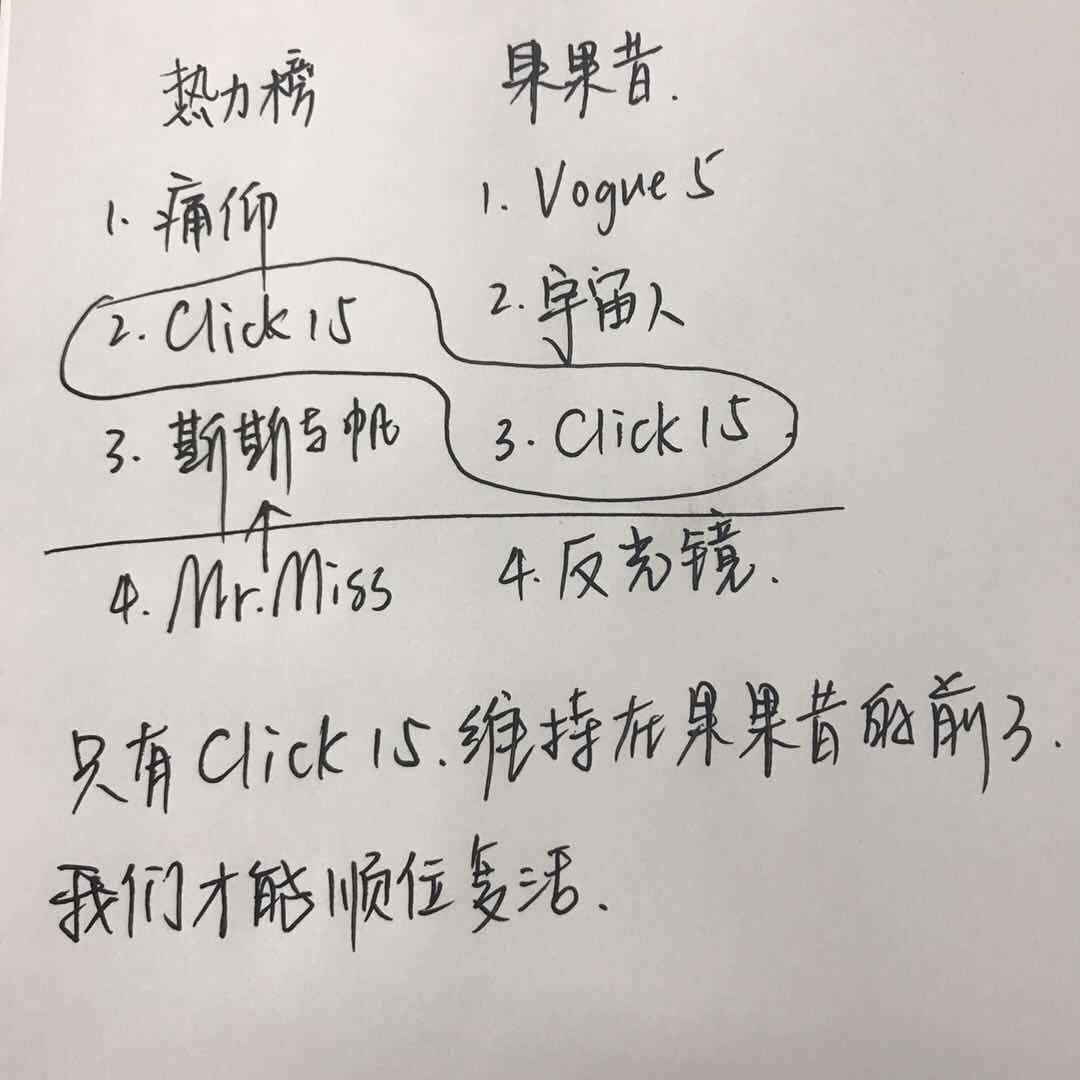 热力榜 果果昔.
1. 痛仰 1. Vogue 5
2. Click 15 2. 宇宙人
3. 斯斯与帆 3. Click 15
4. Mr. Miss 4. 反光镜.
只有 Click 15. 维持在果果昔的前3.
我们才能顺位复活.